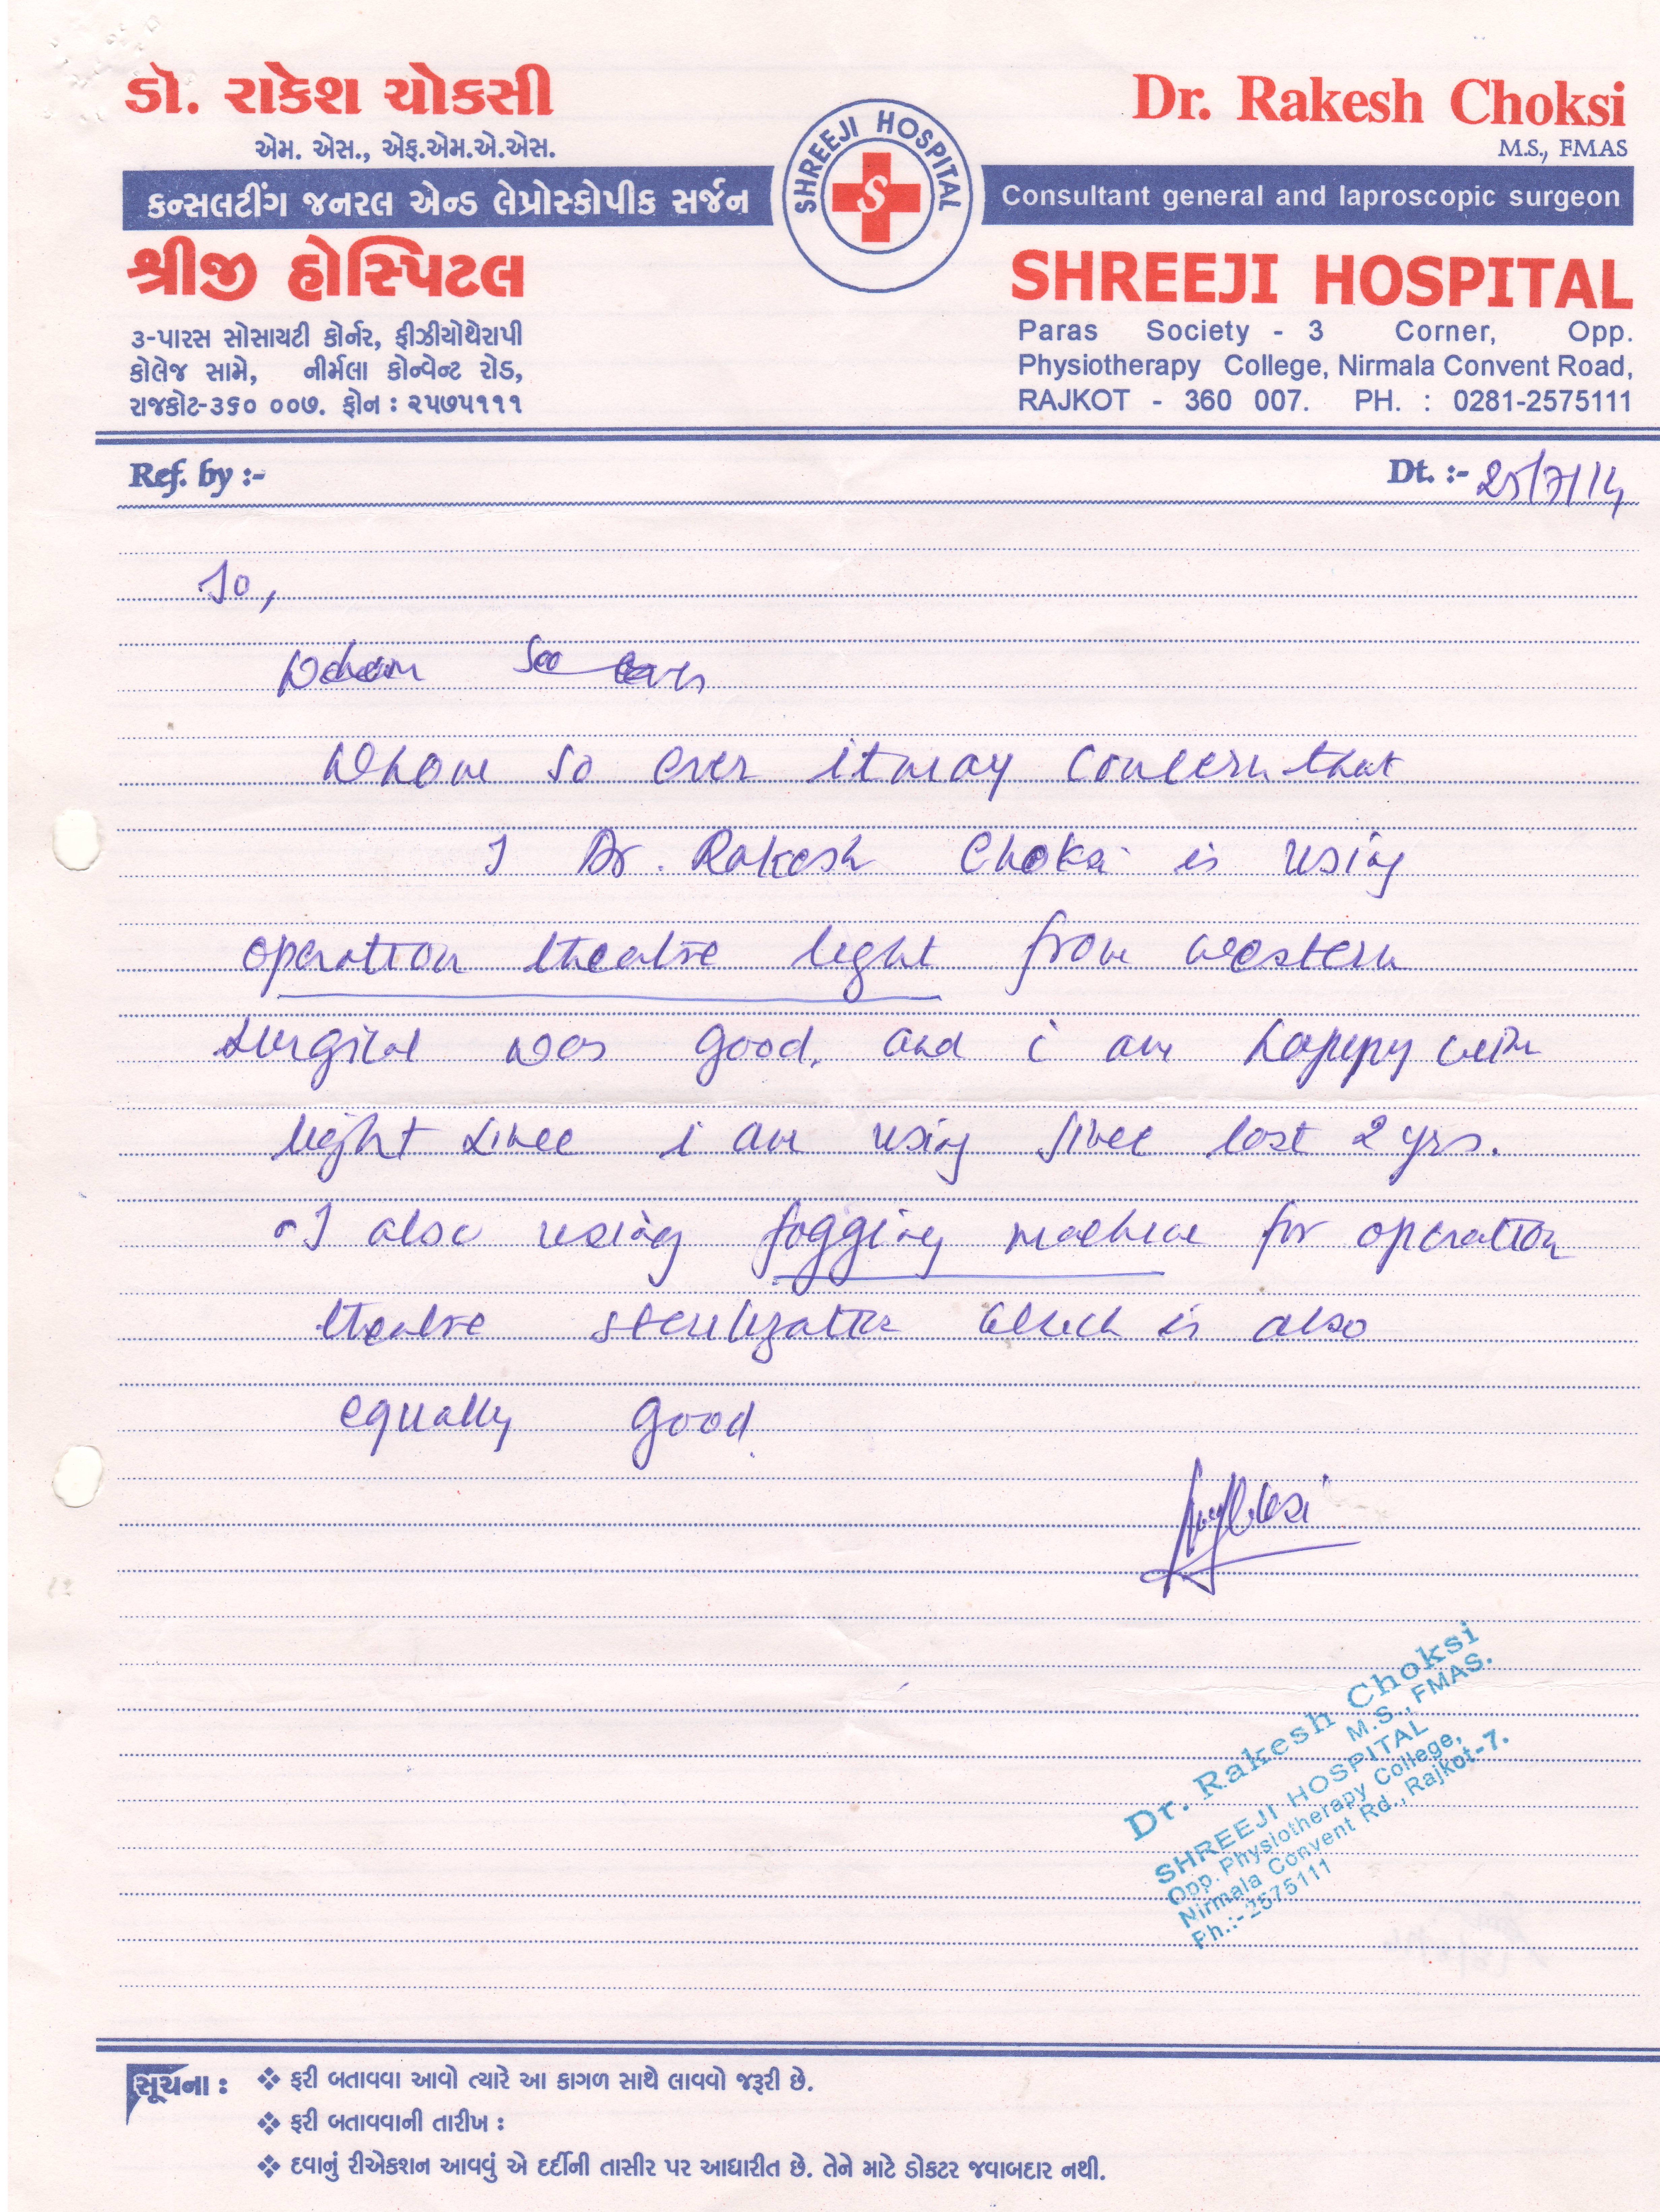 ડૉ. રાકેશ ચોકસી
એમ. એસ., એફ.એમ.એ.એસ.
કન્સલટીંગ જનરલ એન્ડ લેપ્રોસ્કોપીક સર્જન
શ્રીજી હોસ્પિટલ
૩-પારસ સોસાયટી કોર્નર, ફીઝીયોથેરાપી
કોલેજ સામે, નીર્મલા કોન્વેન્ટ રોડ,
રાજકોટ-૩૬૦ ૦૦૭. ફોન : ૨૫૭૫૧૧૧
SHREEJI HOSPITAL
S
Dr. Rakesh Choksi
M.S., FMAS
Consultant general and laproscopic surgeon
SHREEJI HOSPITAL
Paras Society - 3 Corner, Opp.
Physiotherapy College, Nirmala Convent Road,
RAJKOT - 360 007. PH. : 0281-2575111
Ref. by :-
Dt. :- 25/7/14
To,
Whom so ever it may concern that
I Dr. Rakesh Choksi is using
operation theatre light from western
surgical was good. and i am happy with
light since i am using since last 2 yrs.
I also using fogging machine for operation
theatre sterilization which is also
equally good.
Dr. Rakesh Choksi
M.S., FMAS.
SHREEJI HOSPITAL
Opp. Physiotherapy College,
Nirmala Convent Rd., Rajkot-7.
Ph.:-2575111
સૂચના :
❖ ફરી બતાવવા આવો ત્યારે આ કાગળ સાથે લાવવો જરૂરી છે.
❖ ફરી બતાવવાની તારીખ :
❖ દવાનું રીએકશન આવવું એ દર્દીની તાસીર પર આધારીત છે. તેને માટે ડોકટર જવાબદાર નથી.